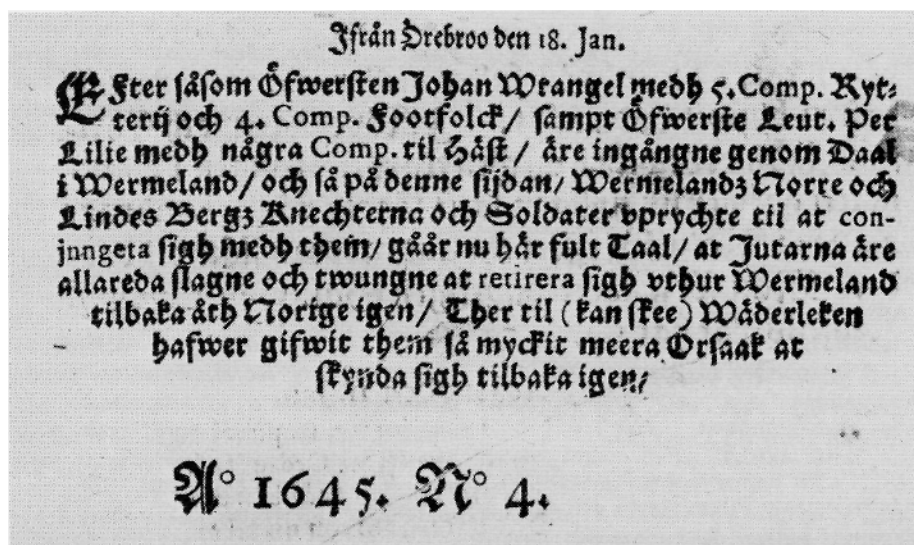 Ifrån Örebroo den 18. Jan.
EFter såsom Öfwersten Johan Wrangel medh 5. Comp. Ryt-
terij och 4. Comp. Footfolck/ sampt Öfwerste Leut. Per
Lilie medh några Comp. til Häst/ äre ingångne genom Daal
i Wermeland/ och så på denne sijdan/ Wermelandz Norre och
Lindes Bergz Knechterna och Soldater vprychte til at con-
jungeta sigh medh them/ gåår nu här fult Taal/ at Jutarna äre
allareda slagne och twungne at retirera sigh vthur Wermeland
tilbaka åth Norige igen/ Ther til (kan skee) Wäderleken
hafwer gifwit them så myckit meera Orsaak at
skynda sigh tilbaka igen/
A° 1645. N° 4.